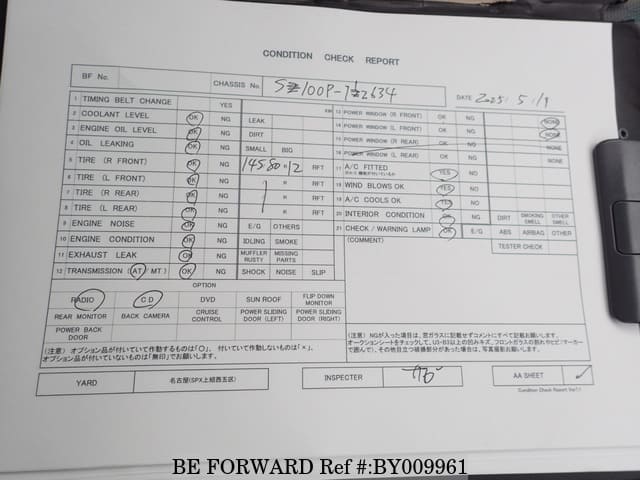 CONDITION CHECK REPORT
BF No. CHASSIS No. DATE 2025. 5. 19
1 TIMING BELT CHANGE YES
2 COOLANT LEVEL OK NG LEAK
3 ENGINE OIL LEVEL OK NG DIRT
4 OIL LEAKING OK NG SMALL BIG
5 TIRE (R FRONT) OK NG RFT
6 TIRE (L FRONT) OK NG RFT
7 TIRE (R REAR) OK NG RFT
8 TIRE (L REAR) OK NG RFT
9 ENGINE NOISE OK NG E/G OTHERS
10 ENGINE CONDITION OK NG IDLING SMOKE
11 EXHAUST LEAK OK NG MUFFLER RUSTY MISSING PARTS
12 TRANSMISSION (AT / MT) OK NG SHOCK NOISE SLIP
13 POWER WINDOW (R FRONT) OK NG NONE
14 POWER WINDOW (L FRONT) OK NG NONE
15 POWER WINDOW (R REAR) OK NG NONE
16 POWER WINDOW (L REAR) OK NG NONE
17 A/C FITTED YES NO
18 WIND BLOWS OK YES NO
19 A/C COOLS OK YES NO
20 INTERIOR CONDITION OK NG DIRT SMOKING SMELL OTHER SMELL
21 CHECK / WARNING LAMP OK E/G ABS AIRBAG OTHER
(COMMENT) TESTER CHECK
OPTION
RADIO CD DVD SUN ROOF FLIP DOWN MONITOR
REAR MONITOR BACK CAMERA CRUISE CONTROL POWER SLIDING DOOR (LEFT) POWER SLIDING DOOR (RIGHT)
POWER BACK DOOR
(注意) オプション品が付いていて作動するものは「○」、付いていて作動しないものは「×」、
オプション品が付いていないものは「無印」でお願いします。
(注意) NGが入った項目は、窓ガラスに記載せずコメントにすべて記載お願いします。
YARD 名古屋(SPX上組西五区) INSPECTER AA SHEET
Condition Check Report Ver7.1
BE FORWARD Ref #:BY009961